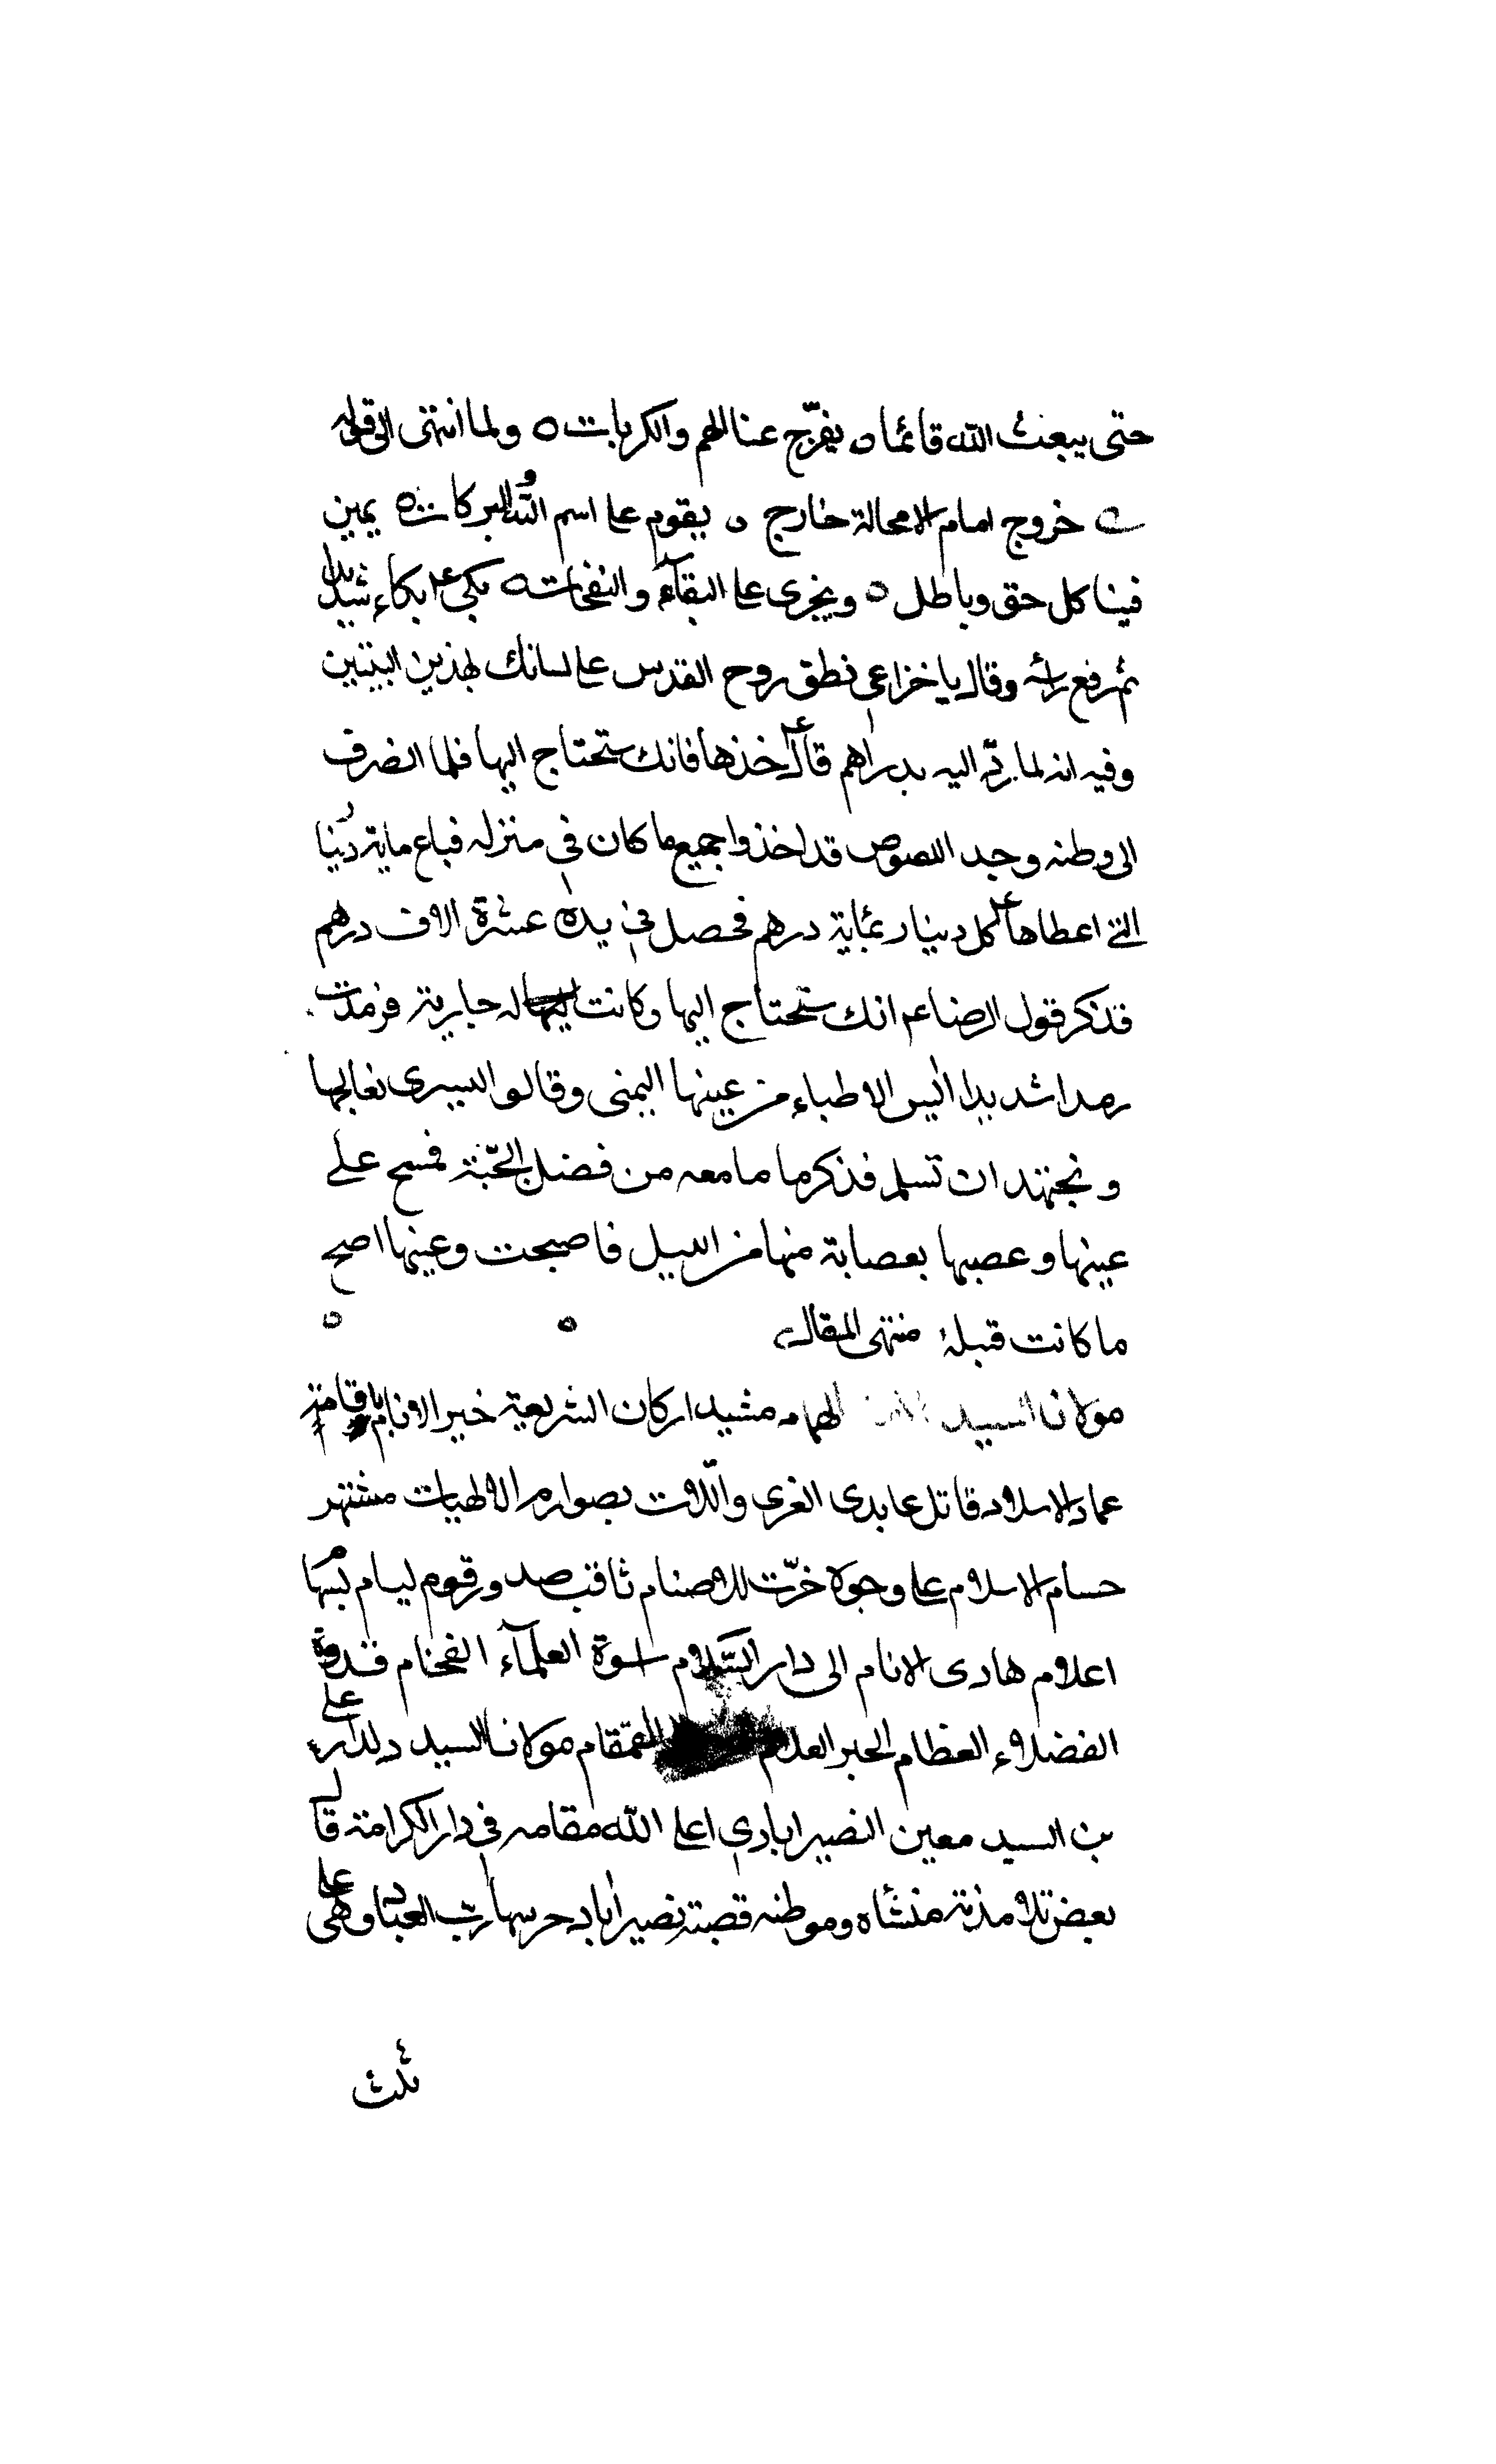 حتى يبعث الله قائما ٥ يفرّج عنا الهم والكربات ٥ ولما انتهى الى قوله
خروج امام لامحالة خارج ٥ يقوم على اسم الله والبركات ٥ يمين
فينا كل حق وباطل ٥ ويجزى على النقمآء والنفحات ٥ بكى ع بكاء شديدا
ثم رفع راسه وقال يا خزاعى نطق روح القدس على لسانك بهذين البيتين
وفيه انه لما ردّ اليه بدراهم قال ع خذها فانك ستحتاج اليها فلما انصرف
الى وطنه وجد اللصوص قد اخذوا جميع ما كان في منزله فباع ماية دينا
التي اعطاها ع كل دينار بماية درهم فحصل في يده عشرة الاف درهم
فذكر قول الرضا عم انك ستحتاج اليها وكانت له جارية فرمدت
رمدا شديدا ايس الاطباء من عينها اليمنى وقالوا اليسرى نعالجها
ونجتهد ان تسلم فذكر ما معه من فضل الجبّة فمسح على
عينها وعصبها بعصابة منها من الليل فاصبحت وعينها اصح
ما كانت قبله منتهى المقال
مولانا السيد الهمام مشيد اركان الشريعة خير الانام باقامة
عماد الاسلام قاتل عابدى العزى واللّات بصوارم الالهيات مشتهر
حسام الاسلام على وجوه خرّت للاصنام ثاقب صدور قوم ليام بسهام
اعلام هادى الانام الى دار السّلام اسوة العلمآء الفخام قدوة
الفضلاء العظام الحبر العلام القمقام مولانا السيد دلدار على
بن السيد معين النصيرابادي اعلى الله مقامه في دار الكرامة قال
بعض تلامذته منشأه وموطنه قصبة نصيراباد حرسها رب العباد وهى على
ثلث